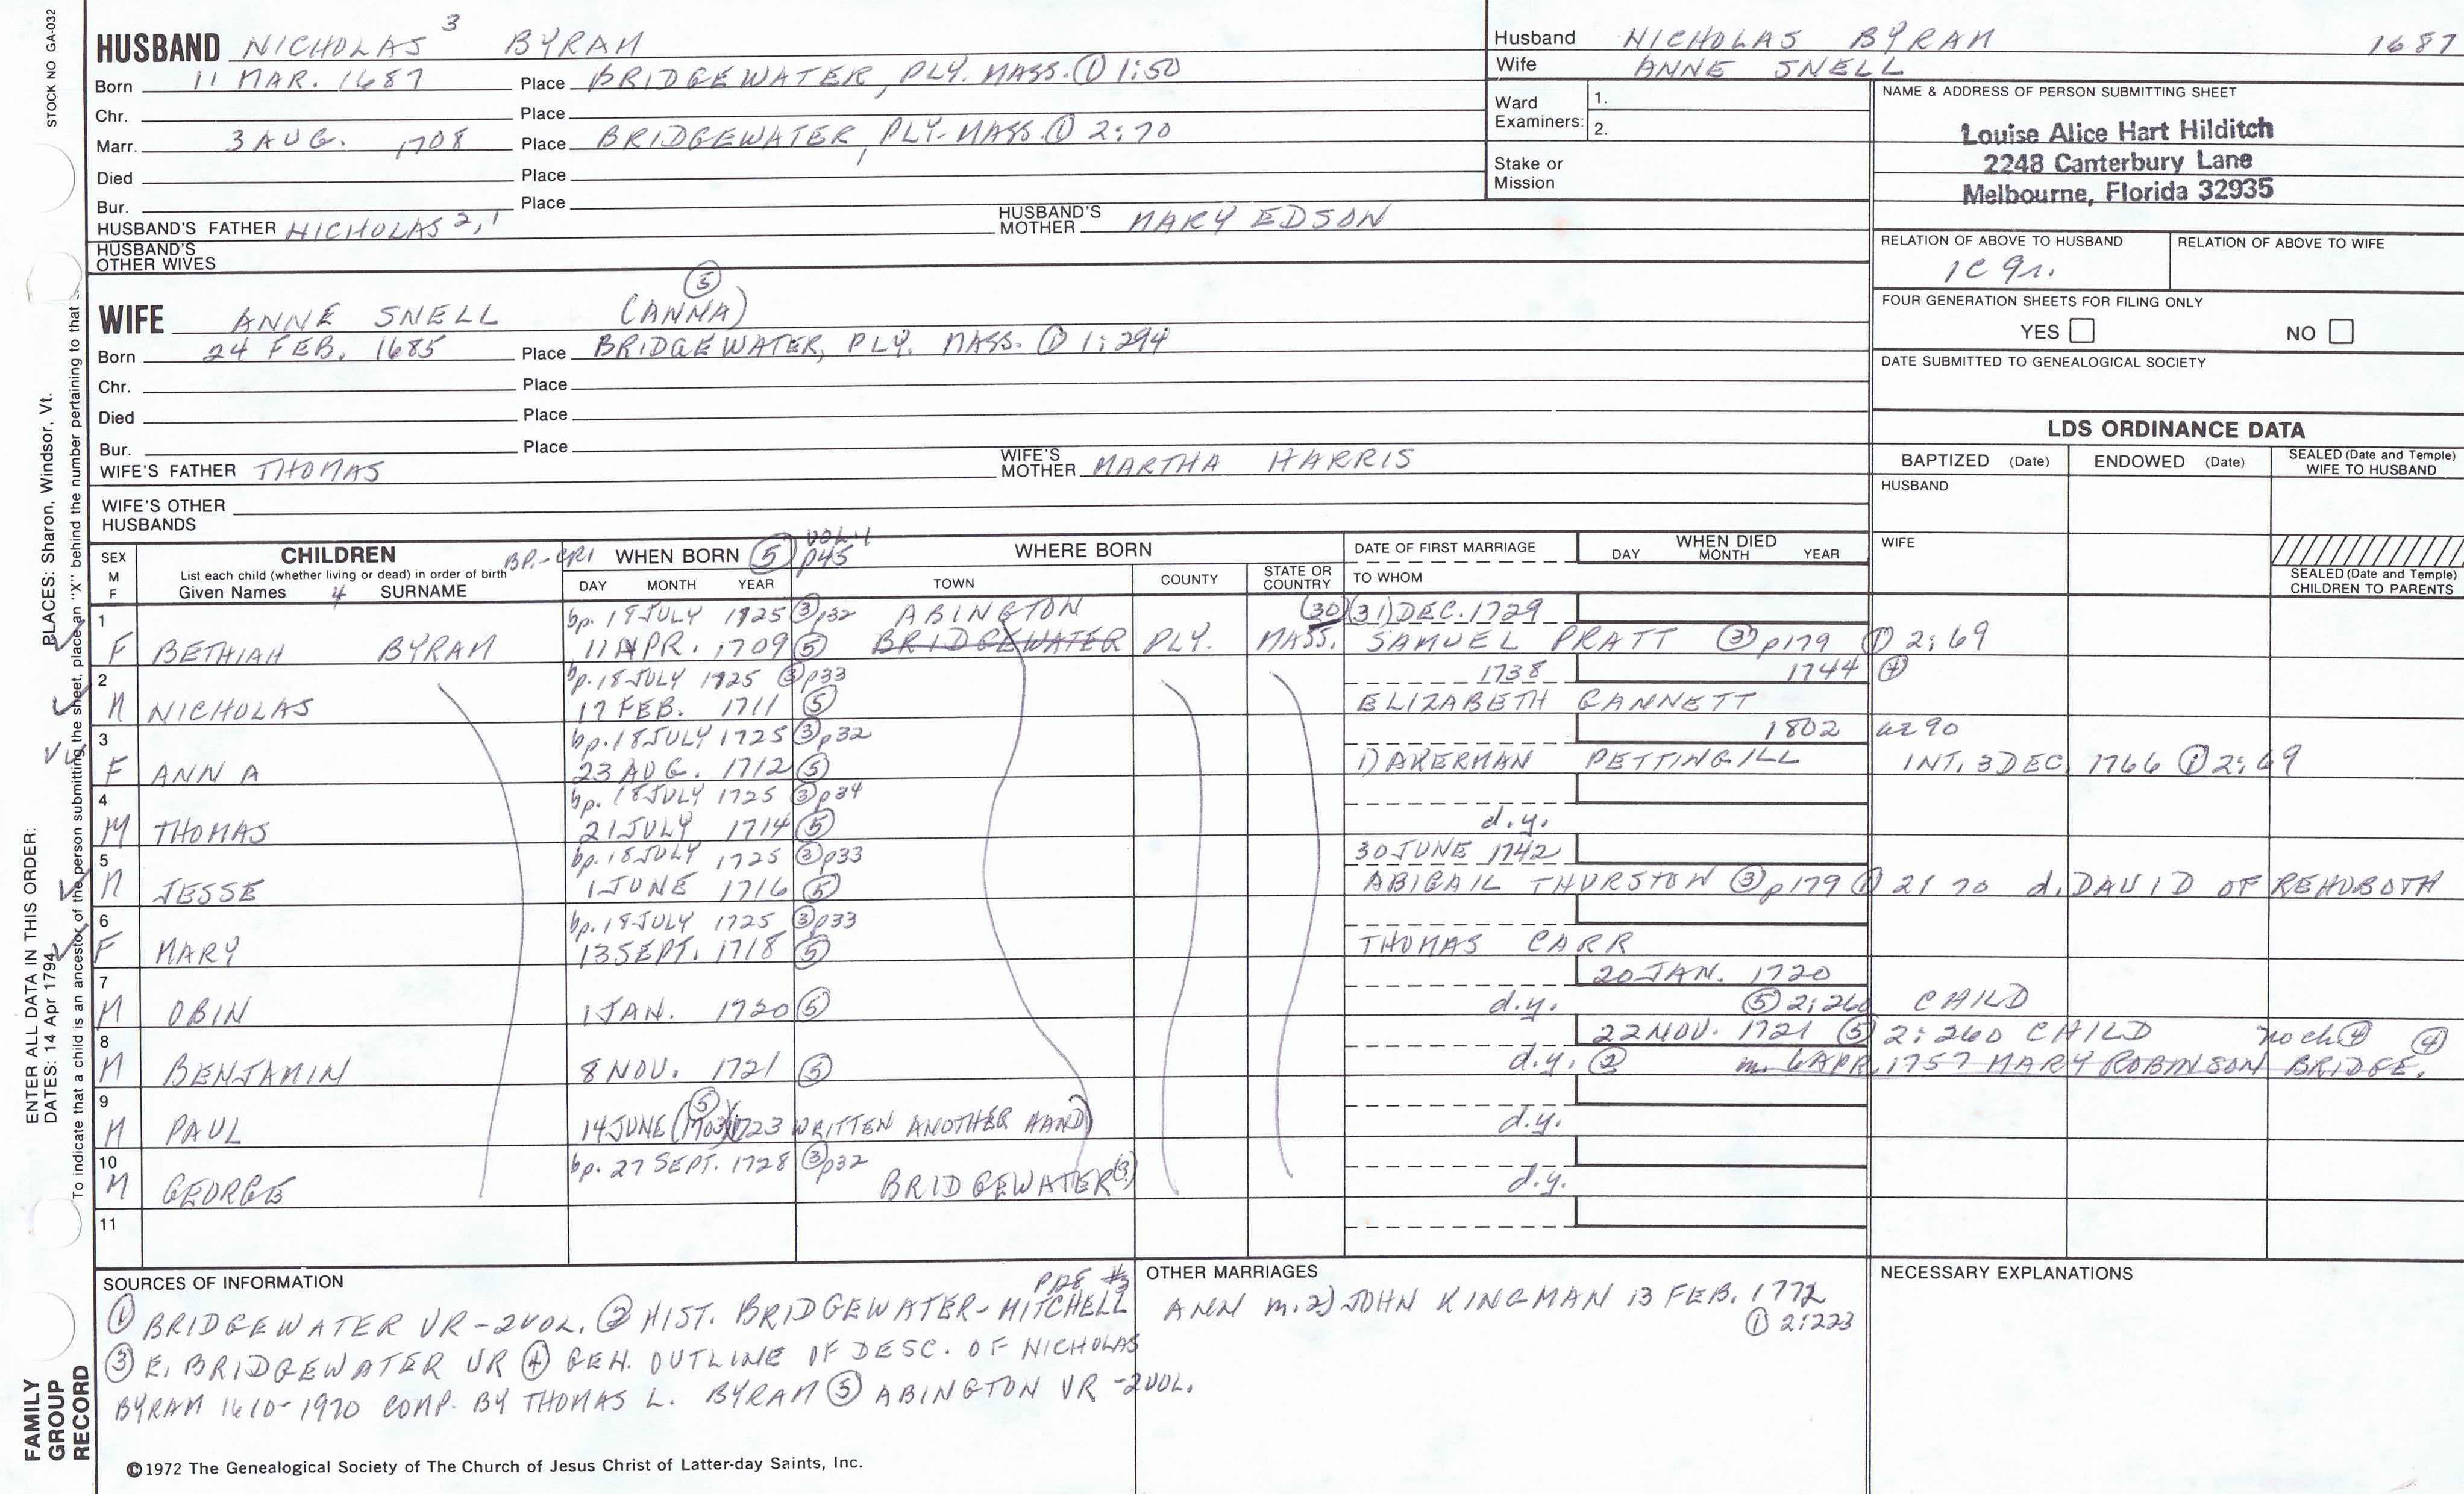 STOCK NO GA-032
HUSBAND NICHOLAS 3 BYRAM
Born 11 MAR. 1687 Place BRIDGEWATER, PLY. MASS. ① 1:50
Chr. Place
Marr. 3 AUG. 1708 Place BRIDGEWATER, PLY-MASS. ① 2:70
Died Place
Bur. Place
HUSBAND'S FATHER NICHOLAS 2,1 HUSBAND'S MOTHER MARY EDSON
HUSBAND'S OTHER WIVES
Husband NICHOLAS BYRAM 1687
Wife ANNE SNELL
Ward Examiners: 1.
2.
Stake or Mission
NAME & ADDRESS OF PERSON SUBMITTING SHEET
Louise Alice Hart Hilditch
2248 Canterbury Lane
Melbourne, Florida 32935
RELATION OF ABOVE TO HUSBAND RELATION OF ABOVE TO WIFE
1C 9r.
FOUR GENERATION SHEETS FOR FILING ONLY
YES NO
DATE SUBMITTED TO GENEALOGICAL SOCIETY
⑤
WIFE ANNE SNELL (ANNA)
Born 24 FEB. 1685 Place BRIDGEWATER, PLY. MASS. ① 1:294
Chr. Place
Died Place
Bur. Place
WIFE'S FATHER THOMAS WIFE'S MOTHER MARTHA HARRIS
WIFE'S OTHER HUSBANDS
LDS ORDINANCE DATA
BAPTIZED (Date) ENDOWED (Date) SEALED (Date and Temple) WIFE TO HUSBAND
HUSBAND
WIFE
SEALED (Date and Temple) CHILDREN TO PARENTS
SEX M F
CHILDREN
List each child (whether living or dead) in order of birth
Given Names 4 SURNAME
BP.-CR1 WHEN BORN ⑤ VOL-1 p45
DAY MONTH YEAR
WHERE BORN
TOWN COUNTY STATE OR COUNTRY
DATE OF FIRST MARRIAGE
TO WHOM
WHEN DIED
DAY MONTH YEAR
1 bp. 18 JULY 1725 ③ p32 ABINGTON (30) (31) DEC. 1729
F BETHIAH BYRAM 11 APR. 1709 ⑤ BRIDGEWATER PLY. MASS. SAMUEL PRATT ③ p179 ① 2:69
2 bp. 18 JULY 1725 ③ p33 1738 1744 ④
M NICHOLAS 17 FEB. 1711 ⑤ ELIZABETH GANNETT
3 bp. 18 JULY 1725 ③ p32 1802 ae 90
F ANNA 23 AUG. 1712 ⑤ 1) AKERMAN PETTINGILL INT. 3 DEC. 1766 ① 2:69
4 bp. 18 JULY 1725 ③ p34
M THOMAS 21 JULY 1714 ⑤ d.y.
5 bp. 18 JULY 1725 ③ p33 30 JUNE 1742
M JESSE 1 JUNE 1716 ⑤ ABIGAIL THURSTON ③ p179 ① 2:70 d. DAVID OF REHOBOTH
6 bp. 18 JULY 1725 ③ p33
F MARY 13 SEPT. 1718 ⑤ THOMAS CARR
7 20 JAN. 1720
M OBIN 1 JAN. 1720 ⑤ d.y. ⑤ 2:260 CHILD
8 22 NOV. 1721 ⑤ 2:260 CHILD no ch ④ ④
M BENJAMIN 8 NOV. 1721 ⑤ d.y. ② m. 6 APR. 1757 MARY ROBINSON BRIDGE.
9 ⑤
M PAUL 14 JUNE (1703)(1723 WRITTEN ANOTHER HAND) d.y.
10 bp. 27 SEPT. 1728 ③ p32
M GEORGE BRIDGEWATER (3) d.y.
11
SOURCES OF INFORMATION
① BRIDGEWATER VR-2VOL. ② HIST. BRIDGEWATER-MITCHELL
③ E. BRIDGEWATER VR ④ GEN. OUTLINE OF DESC. OF NICHOLAS
BYRAM 1610-1970 COMP. BY THOMAS L. BYRAM ⑤ ABINGTON VR-2VOL.
OTHER MARRIAGES
ANN m. 2) JOHN KINGMAN 13 FEB. 1772
① 2:223
NECESSARY EXPLANATIONS
©1972 The Genealogical Society of The Church of Jesus Christ of Latter-day Saints, Inc.
FAMILY GROUP RECORD
ENTER ALL DATA IN THIS ORDER:
DATES: 14 Apr 1794
PLACES: Sharon, Windsor, Vt.
To indicate that a child is an ancestor of the person submitting the sheet, place an "X" behind the number pertaining to that